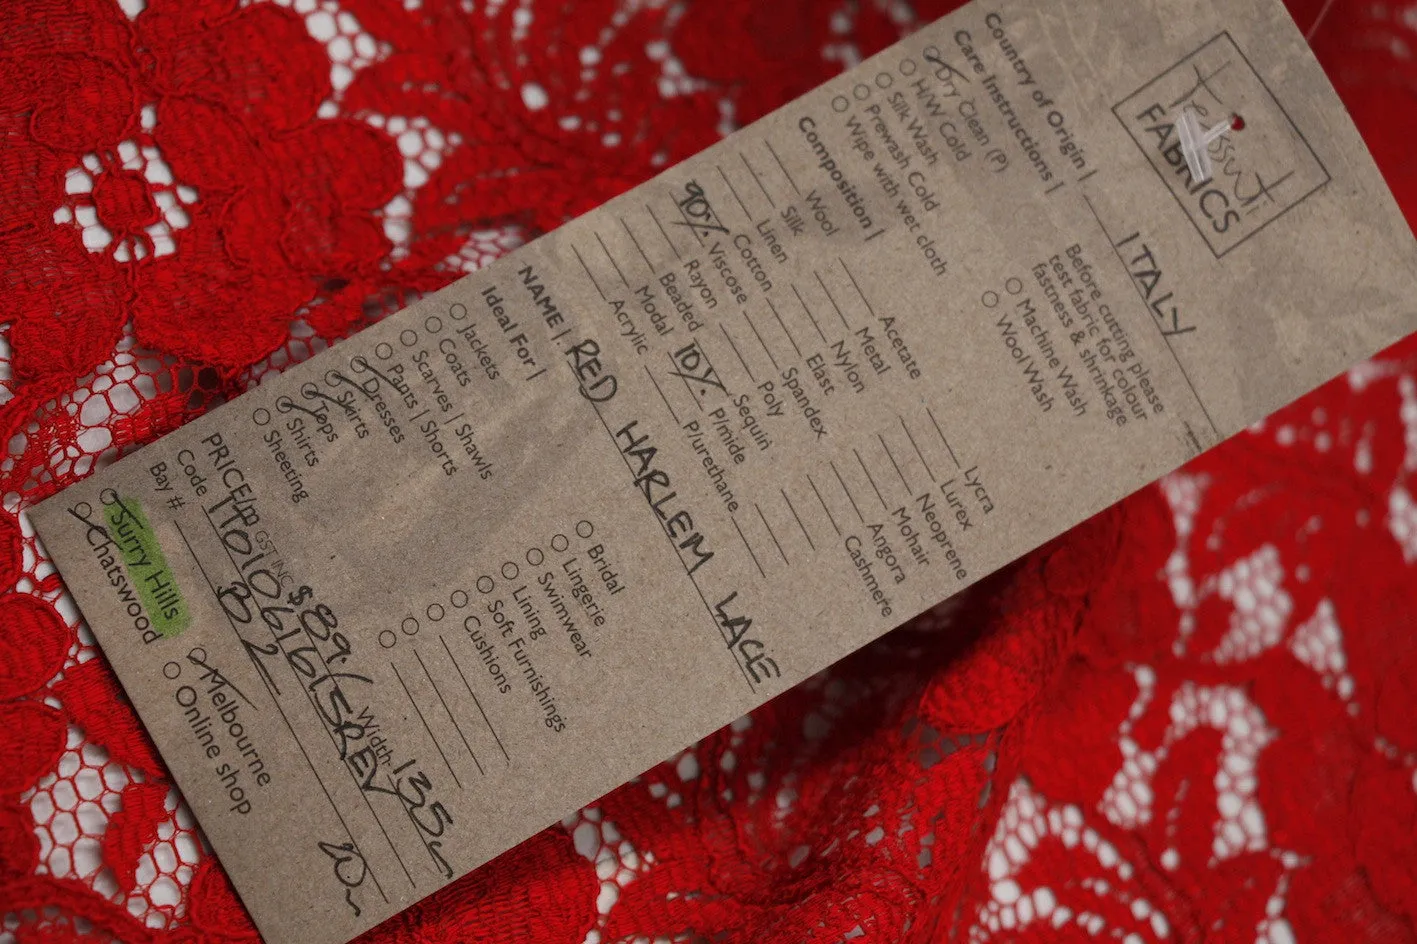 Tessuti
FABRICS
Country of Origin | ITALY
Care Instructions |
Dry Clean (P)
H/W Cold
Silk Wash
Prewash Cold
Wipe with wet cloth
Before cutting please
test fabric for colour
fastness & shrinkage
Machine Wash
Wool Wash
Composition |
Wool Acetate Lycra
Silk Metal Lurex
Linen Nylon Neoprene
Cotton Elast Mohair
90% Viscose Spandex Angora
Rayon Poly Cashmere
Beaded Sequin
Modal 10% P/mide
Acrylic P/urethane
NAME | RED HARLEM LACE
Ideal For |
Jackets Bridal
Coats Lingerie
Scarves | Shawls Swimwear
Pants | Shorts Lining
Dresses Soft Furnishings
Skirts Cushions
Tops
Shirts
Sheeting
PRICE/m GST INC $89./ Width 135
Code
Bay # B2
Surry Hills Melbourne
Chatswood Online shop